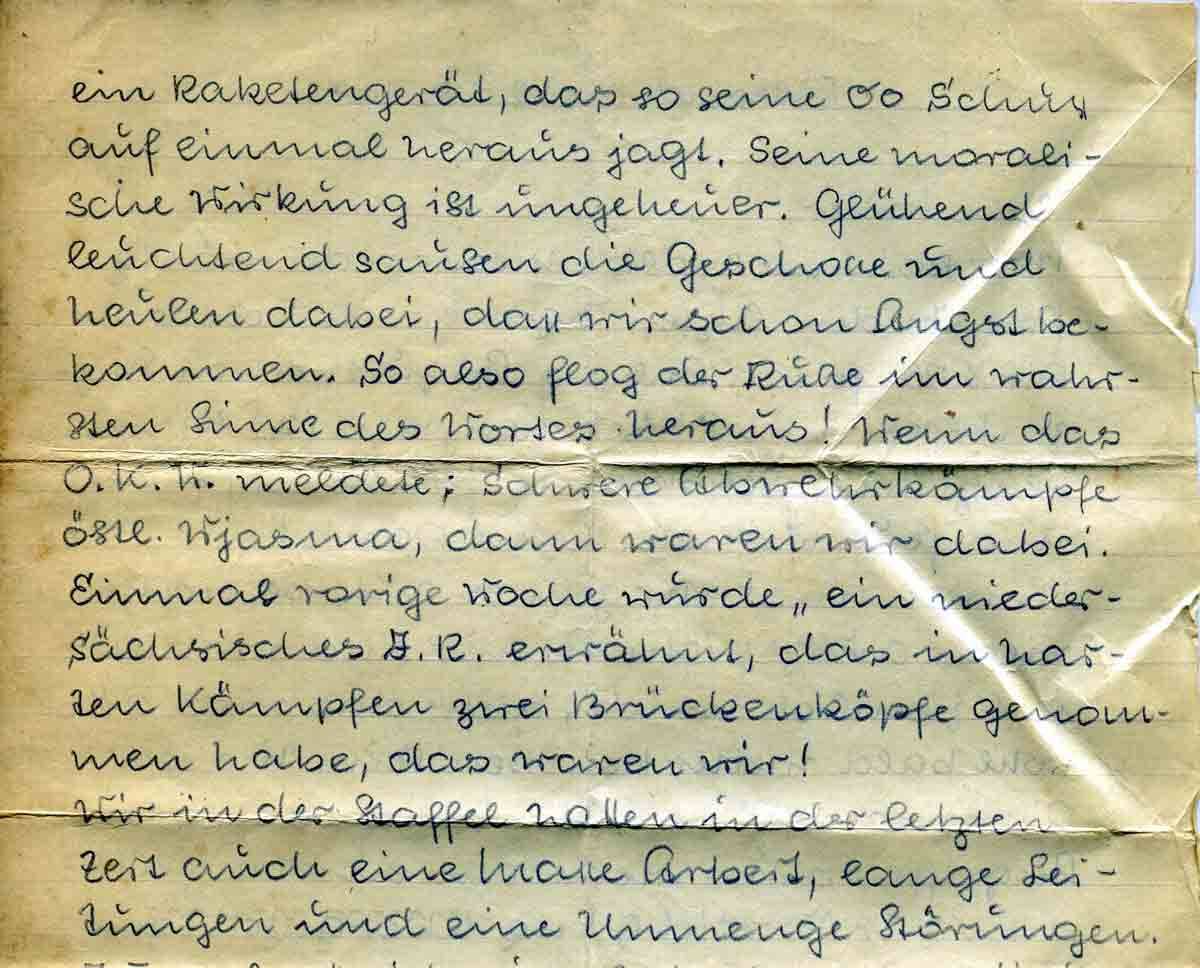 ein Raketengerät, das so seine 80 Schuss
auf einmal heraus jagt. Seine morali-
sche Wirkung ist ungeheuer. Glühend
leuchtend sausen die Geschosse und
heulen dabei, dass wir schon Angst be-
kommen. So also flog der Russe im wahr-
sten Sinne des Wortes heraus! Wenn das
O.K.W. meldete; Schwere Abwehrkämpfe
östl. Wjasma, dann waren wir dabei.
Einmal vorige Woche wurde „ein nieder-
sächsisches J.R. erwähnt, das in har-
ten Kämpfen zwei Brückenköpfe genom-
men habe, das waren wir!
Wir in der Staffel hatten in der letzten
Zeit auch eine Masse Arbeit, lange Lei-
tungen und eine Unmenge Störungen.